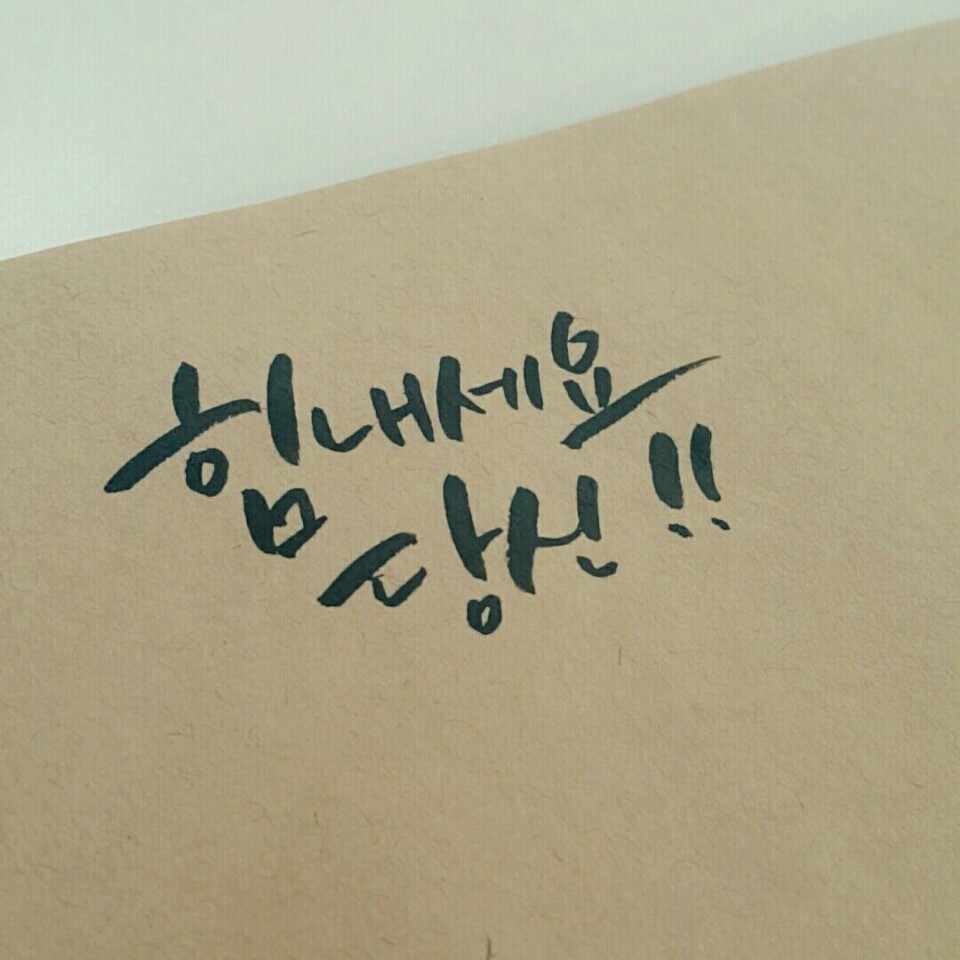 힘내세요
당신!!